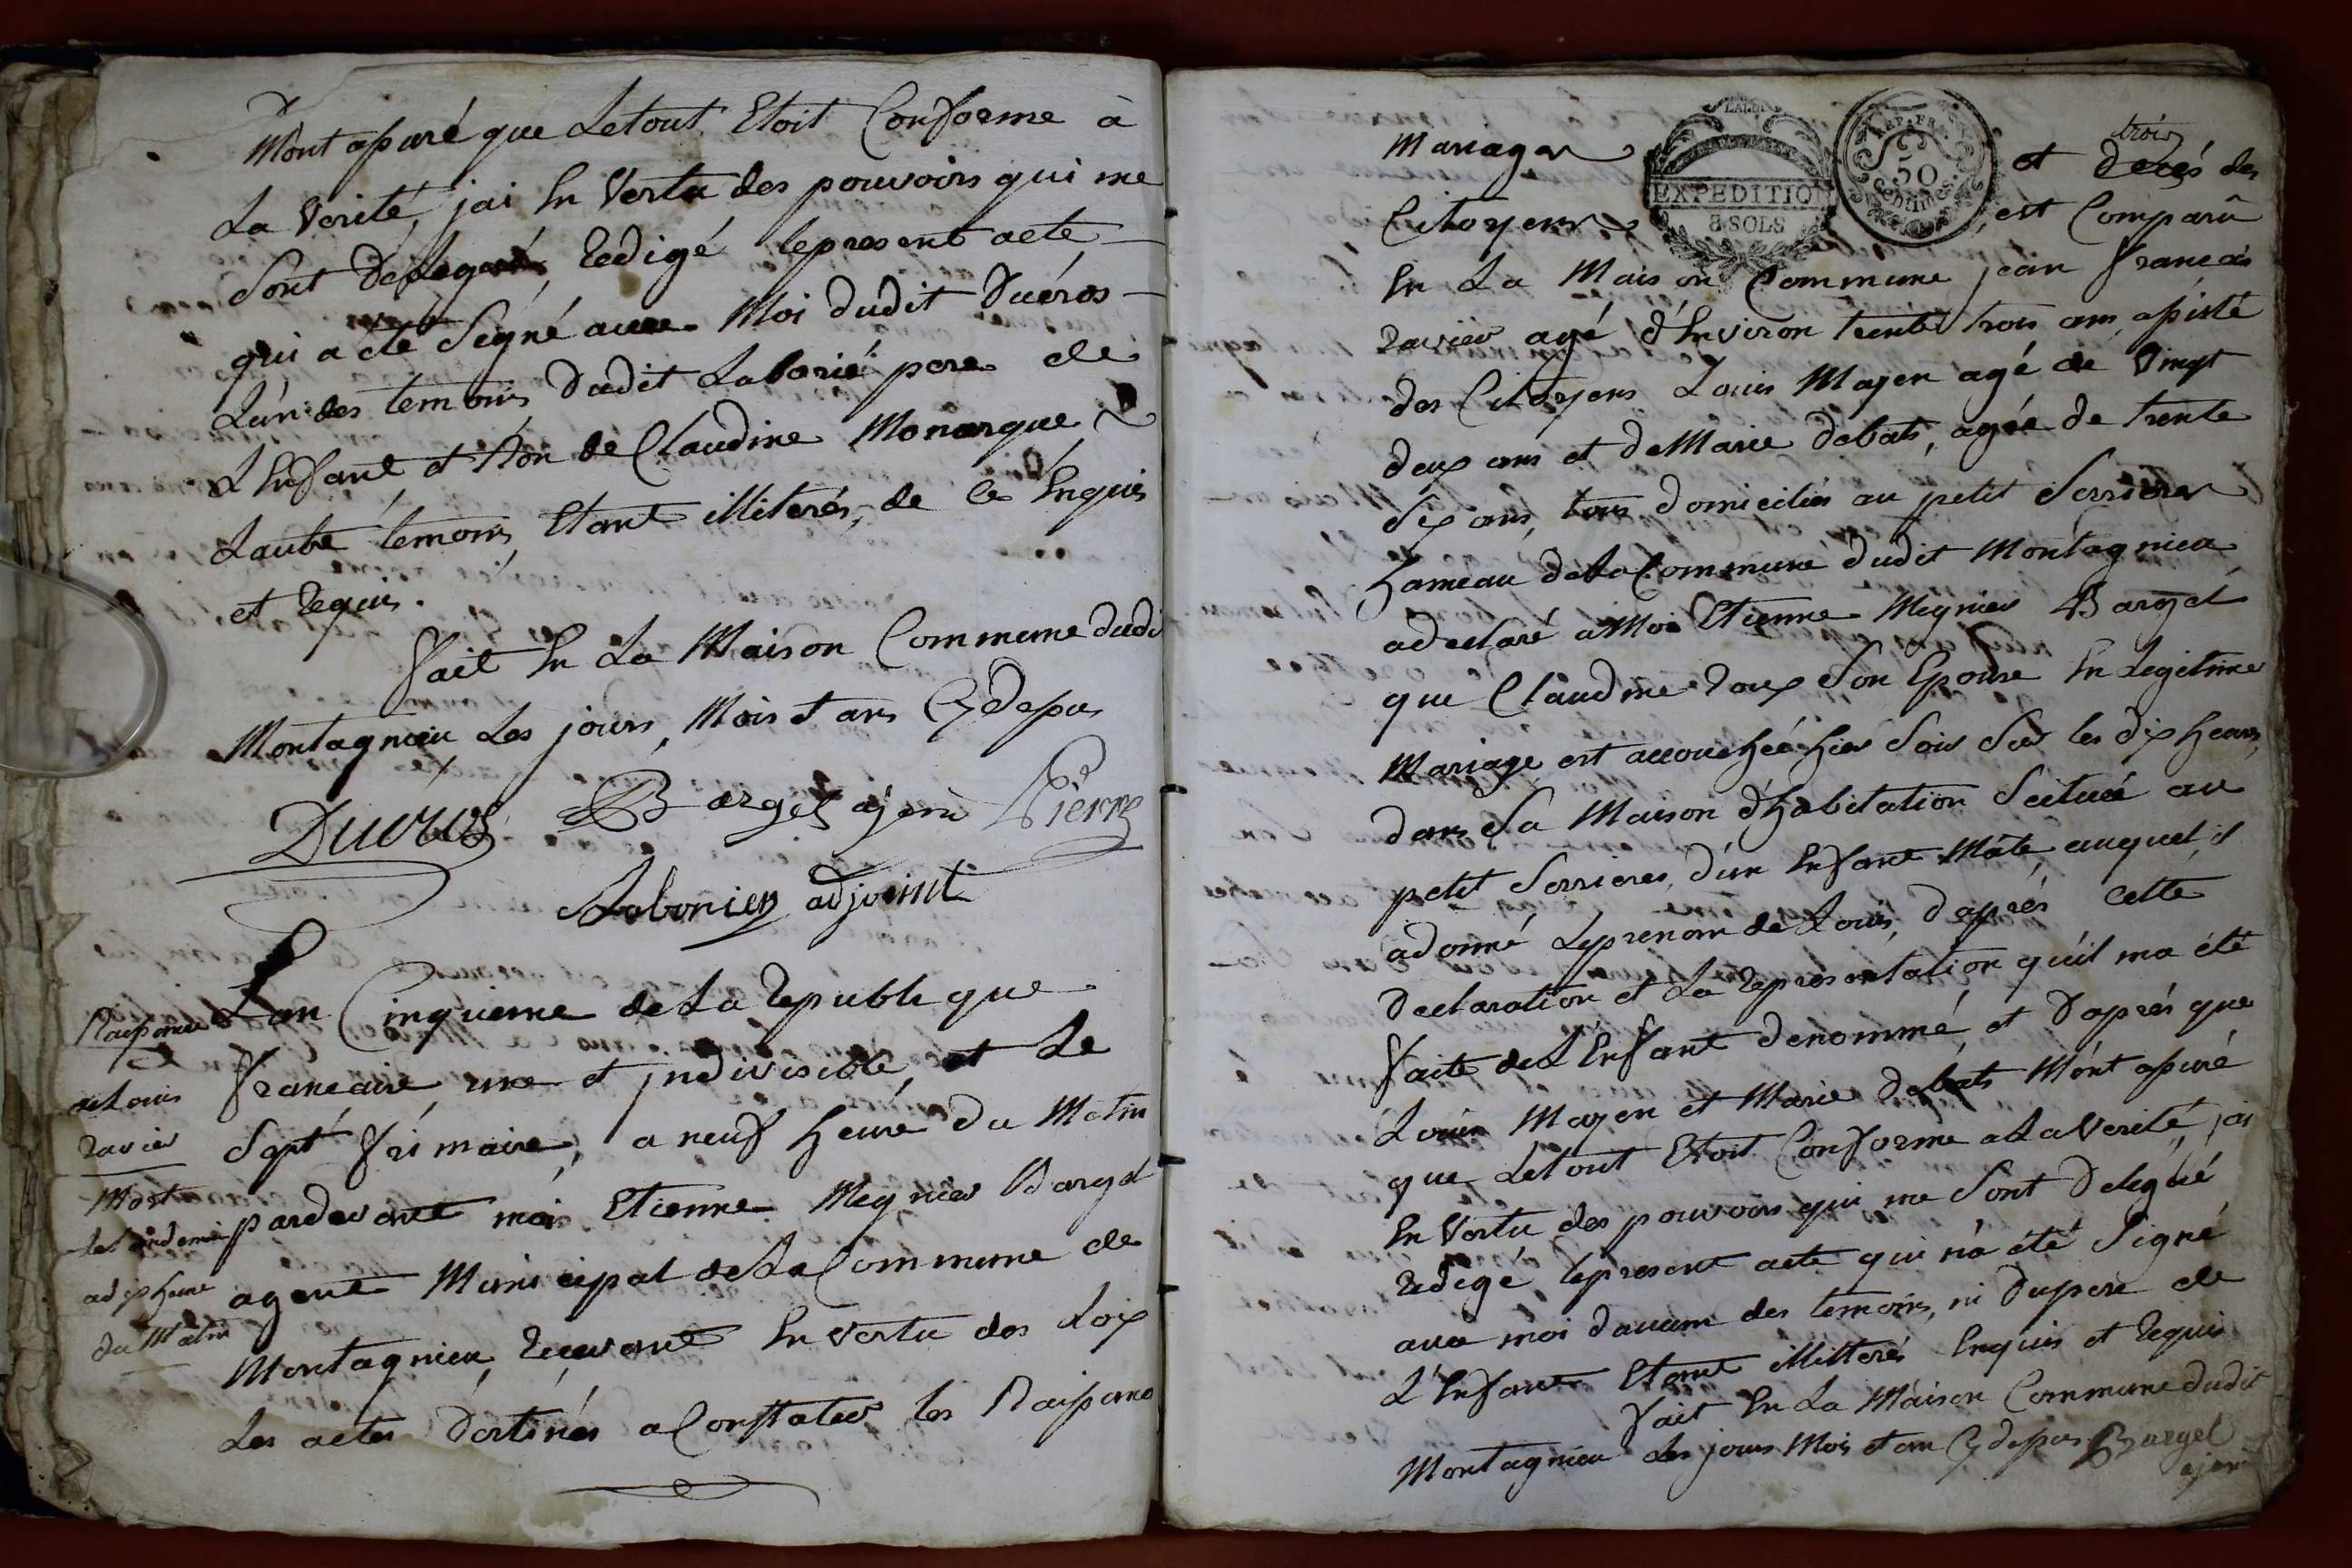 Mont assuré que Letout Etoit Conforme à
La Verité, jai En Vertu des pouvoirs qui me
Sont Delegué, Redigé lepresent acte
qui a été Signé avec Moi dudit Ducros
Lun des temoins dudit Laborié pere de
LEnfant et Non de Claudine Monarque
Lautre temoins Etant illiterés, de ce Enquis
et Requis.
Fait En La Maison Commune dudi
Montagnieu Les jours, Mois et ans Cydessus
Ducros Bargel ajent Pierre
Laborier adjoint
Naissance
de Louis
Ravier
Mort
lelandemain
adix heure
du Matin
Lan Cinquieme de La Republique
Francaise une et indivisible, et Le
Sept Frimaire, a neuf heure du Matin
pardevant moi Etienne Meynier Bargel
agent Municipal de La Commune de
Montagnieu, Recevant En vertu des Loix
Les actes Destinés a Constater les Naissance
Mariages et Decés des
trois
LALOI
EXPEDITION
8 SOLS
REP. FR.
50
centimes.
Citoyens est Comparû
En La Maison Commune jean Francois
Ravier agé d'Environ trente trois ans, assisté
des Citoyens Louis Mayen agé de Vingt
deux ans et de Marie Debats, agée de trente
Six ans, tous domiciliés au petit Serrieres
hameau de La Commune dudit Montagnieu
adeclaré a Moi Etienne Meynier Bargel
que Claudine Roux Son Epouse En Legitime
Mariage est accouchée hier Soir Sur les dix heures,
dans Sa Maison d'habitation Scituée au
petit Serrieres, d'un Enfant Mâle, auquel, il
adonné Leprenom de Louis, d'aprés cette
Declaration et La Representation qu'il ma été
Faite de L'Enfant denommé, et D'aprés que
Louis Mayen et Marie Debats M'ont assuré
que Letout Etoit Conforme a La Verité, jai
En Vertu des pouvoirs qui me Sont Delegué
Redigé lepresent acte qui n'a été Signé
avec moi d'aucun des temoins, ni Dupere de
L'Enfant Etant illitterés Enquis et Requis
Fait En La Maison Commune dudit
Montagnieu Les jours Mois et an Cydessus Bargel
ajent